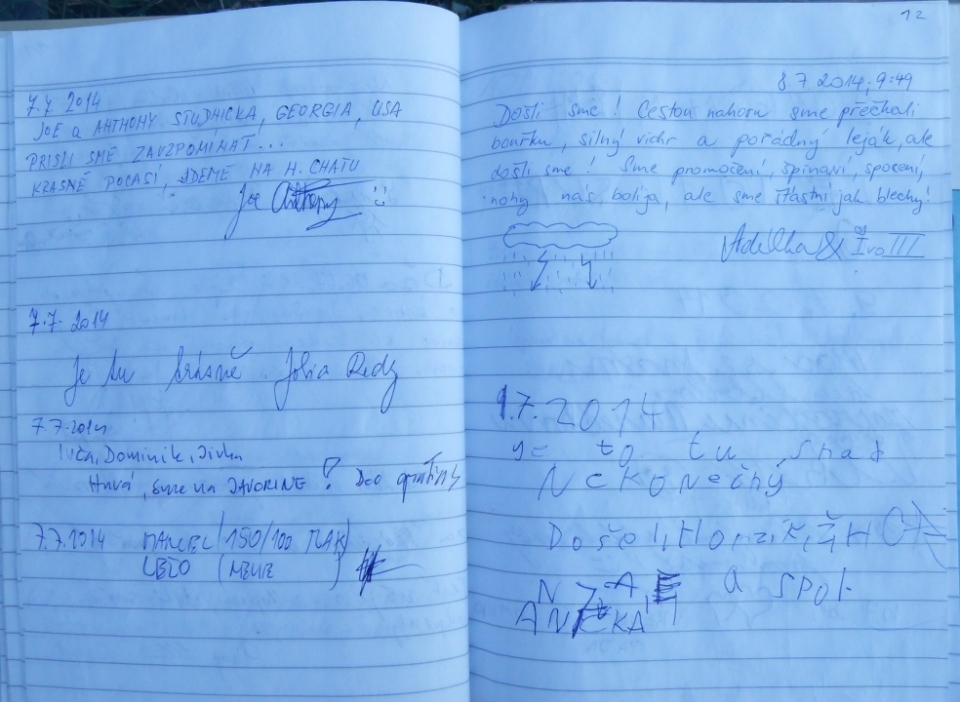 7.7 2014
JOE a ANTHONY STUDNICKA, GEORGIA, USA
PRISLI SME ZAVZPOMÍNAT...
KRASNÉ POCASÍ, JDEME NA H. CHATU
Joe Anthony :)
7.7. 2014
Je tu krásně Jolia
7.7.2014
Ivča, Dominik, Jirka
Hurá, sme na JAVORINE!
7.7.2014 MARCEL (150/100 TLAK)
12
8 7 2014, 9:49
Došli sme! Cestou nahoru sme přečkali
bouřku, silný vichr a pořádný leják, ale
došli sme! Sme promočení, špinaví, spocení,
nohy nás bolija, ale sme šťastní jak blechy!
Adélka & Ivo III
9.7.2014
je to tu snad
Nekonečný
Došel
a spol.
ANEŽKA